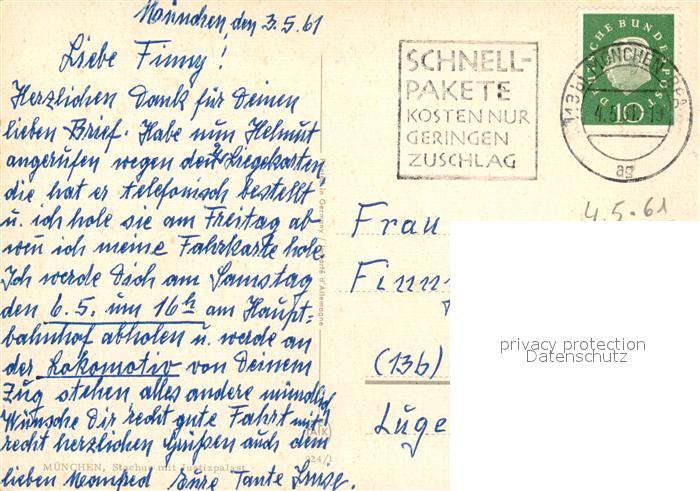 München, den 3.5.61
Liebe Finny!
Herzlichen Dank für Deinen
lieben Brief. Habe nun Helmut
angerufen wegen der Liegekarten
die hat er telefonisch bestellt
u. ich hole sie am Freitag ab
wen ich meine Fahrkarte hole
Ich werde Dich am Samstag
den 6.5. um 16h am Haupt-
bahnhof abholen u. werde an
der Lokomotiv von Deinem
Zug stehen, alles andere mündlich
Wünsche Dir recht gute Fahrt mit
recht herzlichen Grüßen auch dem
lieben Manfred Eure Tante Luise.
MÜNCHEN, Stachus mit Justizpalast
(AIK)
824/1
in Germany
d'Allemagne
SCHNELL-
PAKETE
KOSTEN NUR
GERINGEN
ZUSCHLAG
MÜNCHEN
ag
DEUTSCHE BUNDESPOST
10
4.5.61
Frau
(13b)
privacy protection
Datenschutz